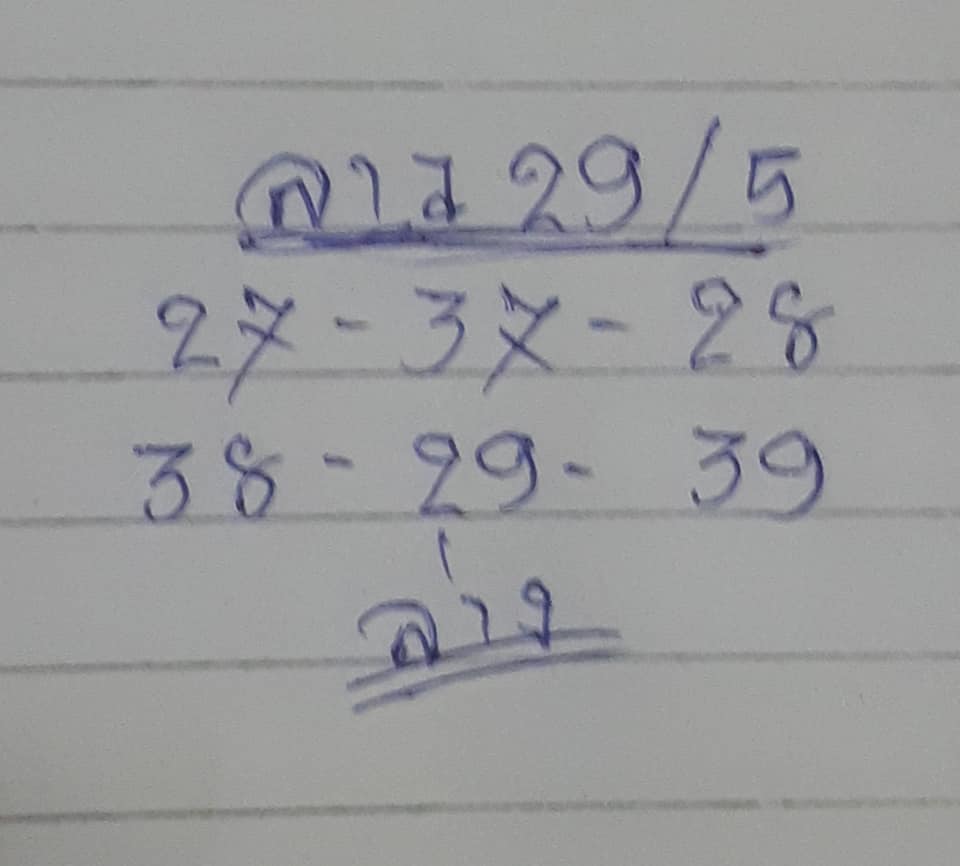 ลาว 29/5
27 - 37 - 28
38 - 29 - 39
ล่าง